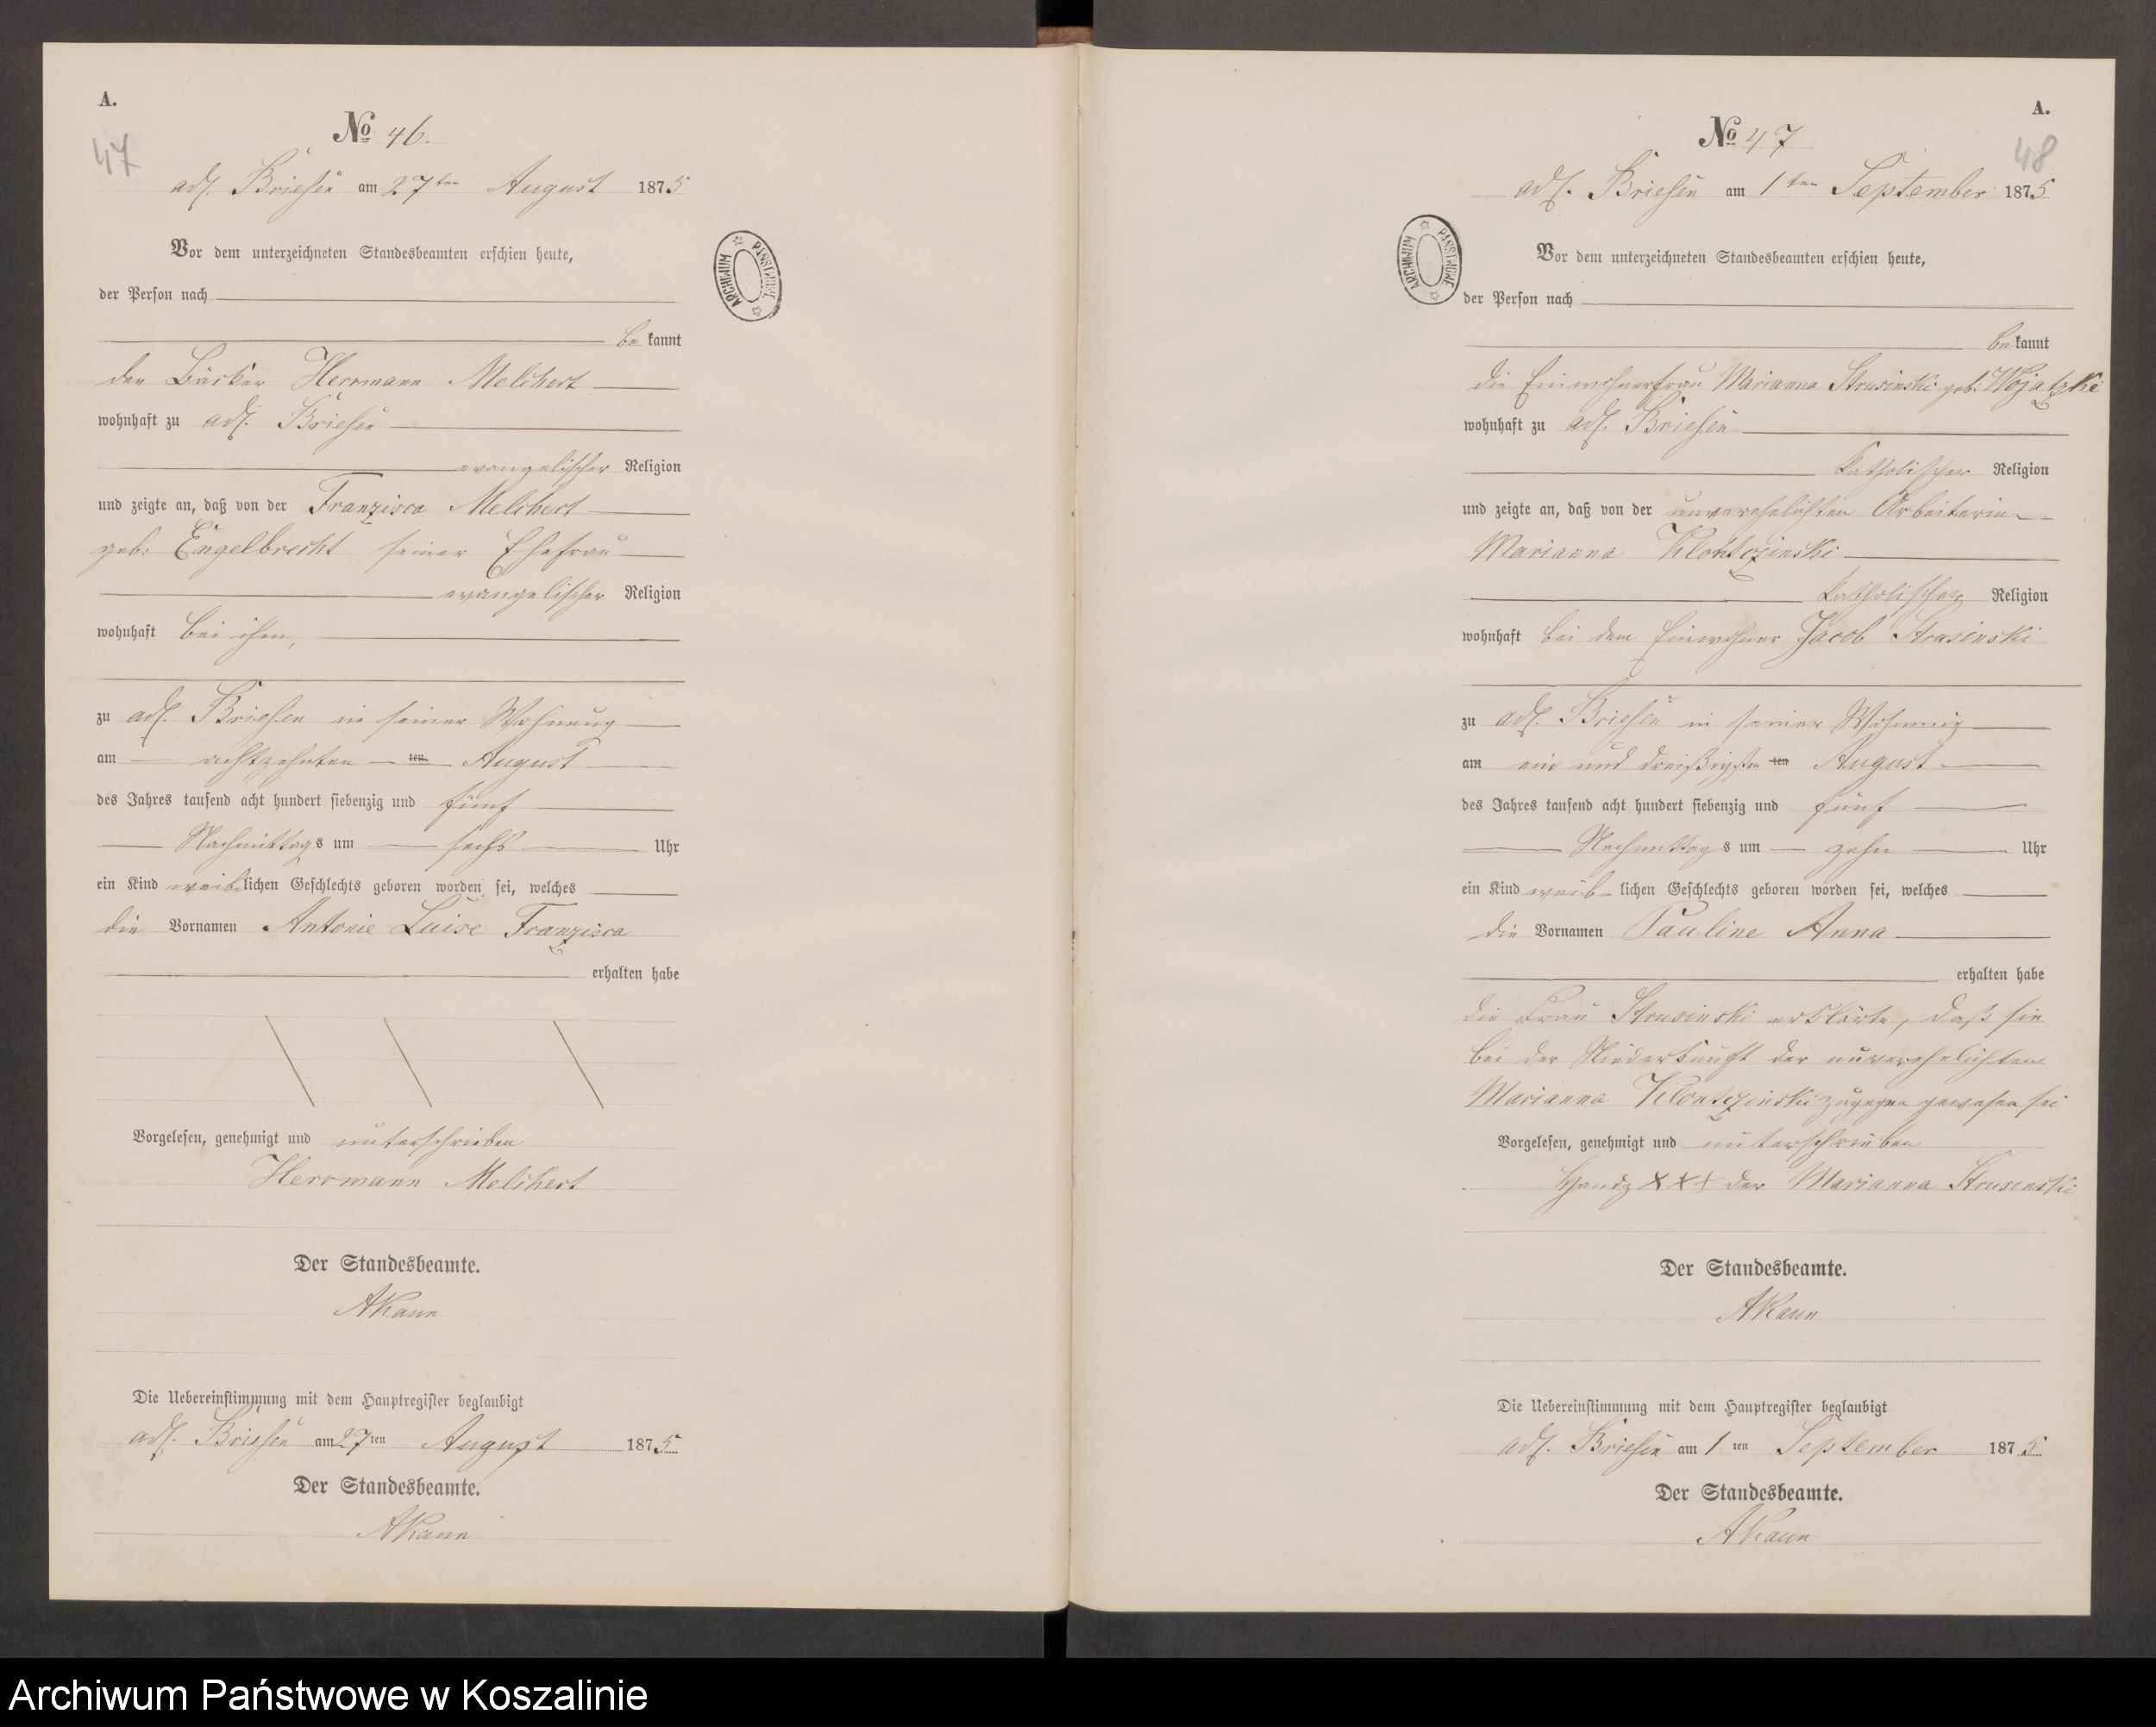 A.
47
No 46.
adl. Briesen am 27ten August 1875
Vor dem unterzeichneten Standesbeamten erschien heute,
der Person nach
bekannt
der Bäcker Herrmann Melchert
wohnhaft zu adl. Briesen
evangelischer Religion
und zeigte an, daß von der Franzisca Melchert
geb. Engelbrecht seiner Ehefrau
evangelischer Religion
wohnhaft bei ihm,
zu adl. Briesen in seiner Wohnung
am achtzehnten ten August
des Jahres tausend acht hundert siebenzig und fünf
Nachmittags um sechs Uhr
ein Kind weiblichen Geschlechts geboren worden sei, welches
die Vornamen Antonie Luise Franzisca
erhalten habe
Vorgelesen, genehmigt und unterschrieben
Herrmann Melchert
Der Standesbeamte.
AKann
Die Uebereinstimmung mit dem Hauptregister beglaubigt
adl. Briesen am 27ten August 1875
Der Standesbeamte.
AKann
ARCHIWUM PAŃSTWOWE
A.
48
No 47
adl. Briesen am 1ten September 1875
Vor dem unterzeichneten Standesbeamten erschien heute,
der Person nach
bekannt
die Einwohnerfrau Marianna Strusinski geb. Wojatzki
wohnhaft zu adl. Briesen
katholischer Religion
und zeigte an, daß von der unverehelichten Arbeiterin
Marianna Klontzinski
katholischer Religion
wohnhaft bei dem Einwohner Jacob Strusinski
zu adl. Briesen in seiner Wohnung
am ein und dreißigsten ten August
des Jahres tausend acht hundert siebenzig und fünf
Nachmittags um zehn Uhr
ein Kind weiblichen Geschlechts geboren worden sei, welches
die Vornamen Pauline Anna
erhalten habe
die Frau Strusinski erklärte, daß sie
bei der Niederkunft der unverehelichten
Marianna Klontzinski zugegen gewesen sei
Vorgelesen, genehmigt und unterschrieben
Handz XXX der Marianna Strusinski
Der Standesbeamte.
AKann
Die Uebereinstimmung mit dem Hauptregister beglaubigt
adl. Briesen am 1ten September 1875
Der Standesbeamte.
AKann
ARCHIWUM PAŃSTWOWE
Archiwum Państwowe w Koszalinie